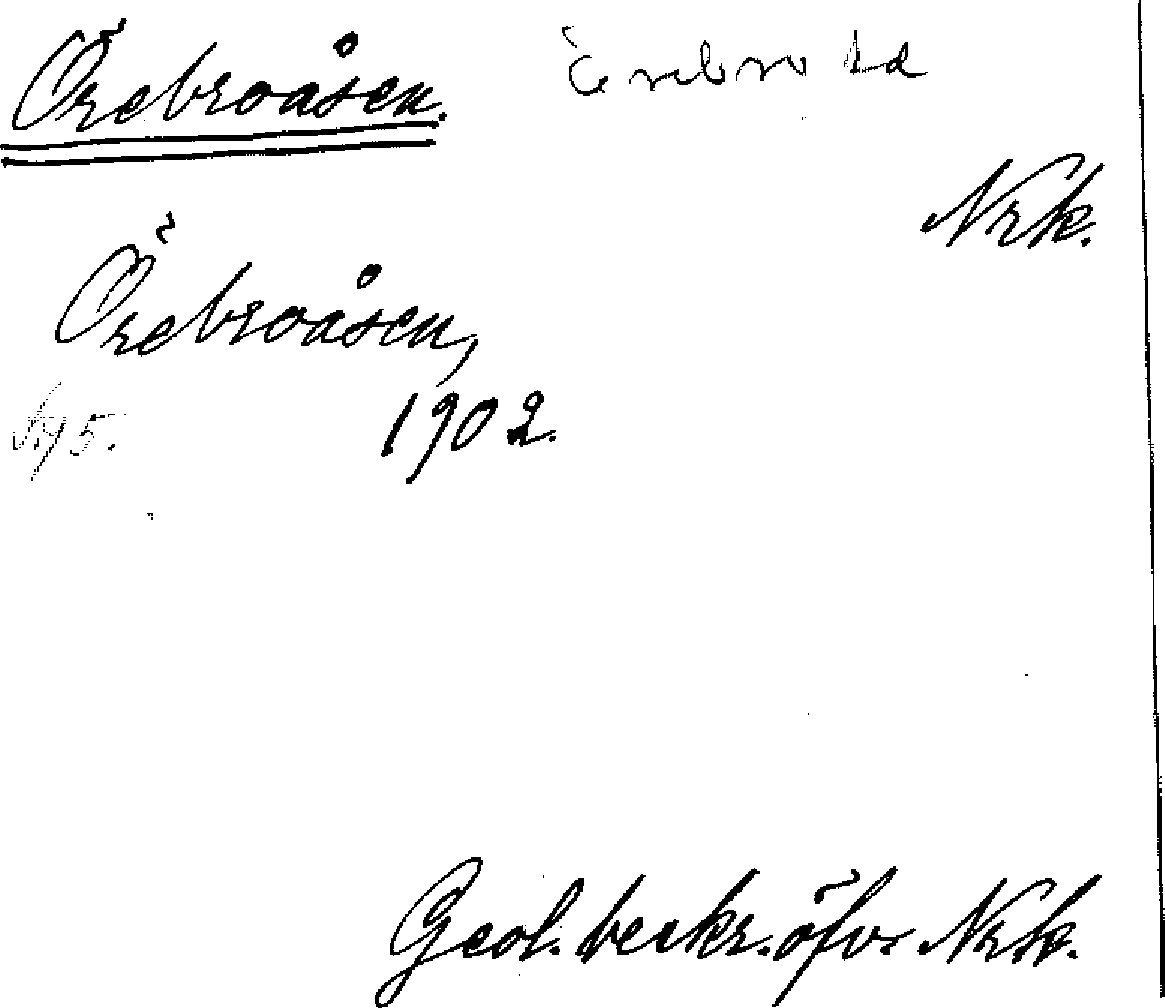 Örebroåsen. Örebro hd
Nrk.
Örebroåsen,
1902.
Geol. beskr. öfv. Nrk.